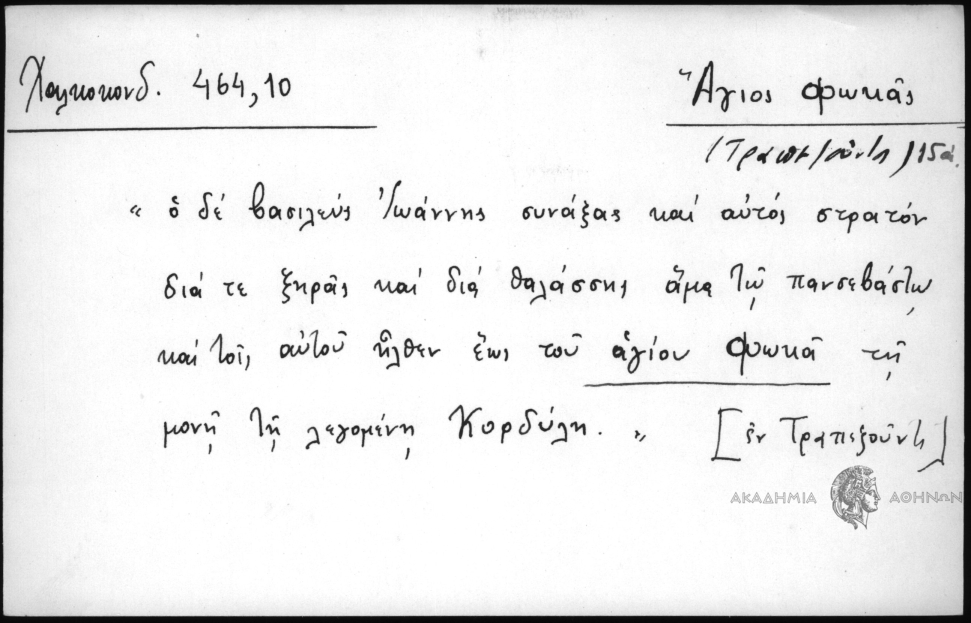 Χαλκοκονδ. 464,10
Ἅγιος Φωκᾶς
(Τραπεζοῦντι) 15
« ὁ δέ βασιλεύς Ἰωάννης συνάξας καί αὐτός στρατόν
διά τε ξηρᾶς καί διά θαλάσσης ἅμα τῷ πανσεβάστῳ
καί τοῖς αὐτοῦ ἦλθεν ἕως τοῦ ἁγίου Φωκᾶ τῇ
μονῇ τῇ λεγομένῃ Κορδύλη. » [ἐν Τραπεζοῦντι]
ΑΚΑΔΗΜΙΑ ΑΘΗΝΩΝ